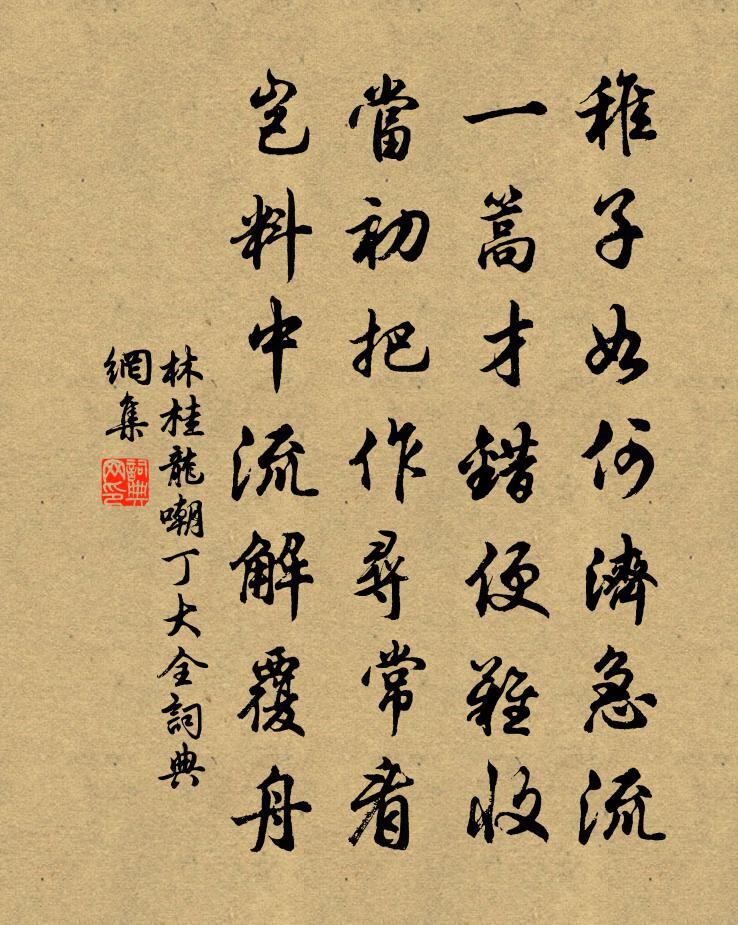 稚子如何濟急流
一篙才錯便難收
當初把作尋常看
豈料中流解覆舟
林桂龍嘲丁大全詞典
網集
詞典網印